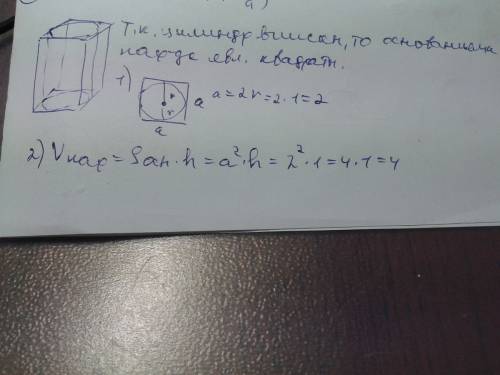 a)
Т.к. цилиндр вписан, то основанием
пар-да явл. квадраты.
1) r a a=2r=2·1=2
a
2) Vпар=Sан·h=a²·h=2²·1=4·1=4